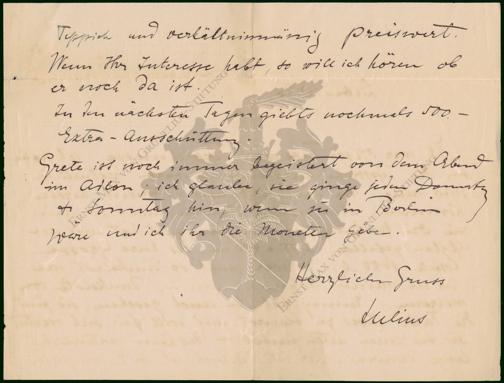 Teppich und verhältnismässig preiswert.
Wenn Ihr Interesse habt so will ich hören ob
er noch da ist.
In den nächsten Tagen giebts nochmals 500 –
Extra-Ausschüttung.
Grete ist noch immer begeistert von dem Abend
im Adlon, ich glaube, sie ginge jeden
& Sonntag hin, wenn sie in Berlin
wäre und ich ihr die Moneten gäbe.
Herzlichen Gruss
Julius